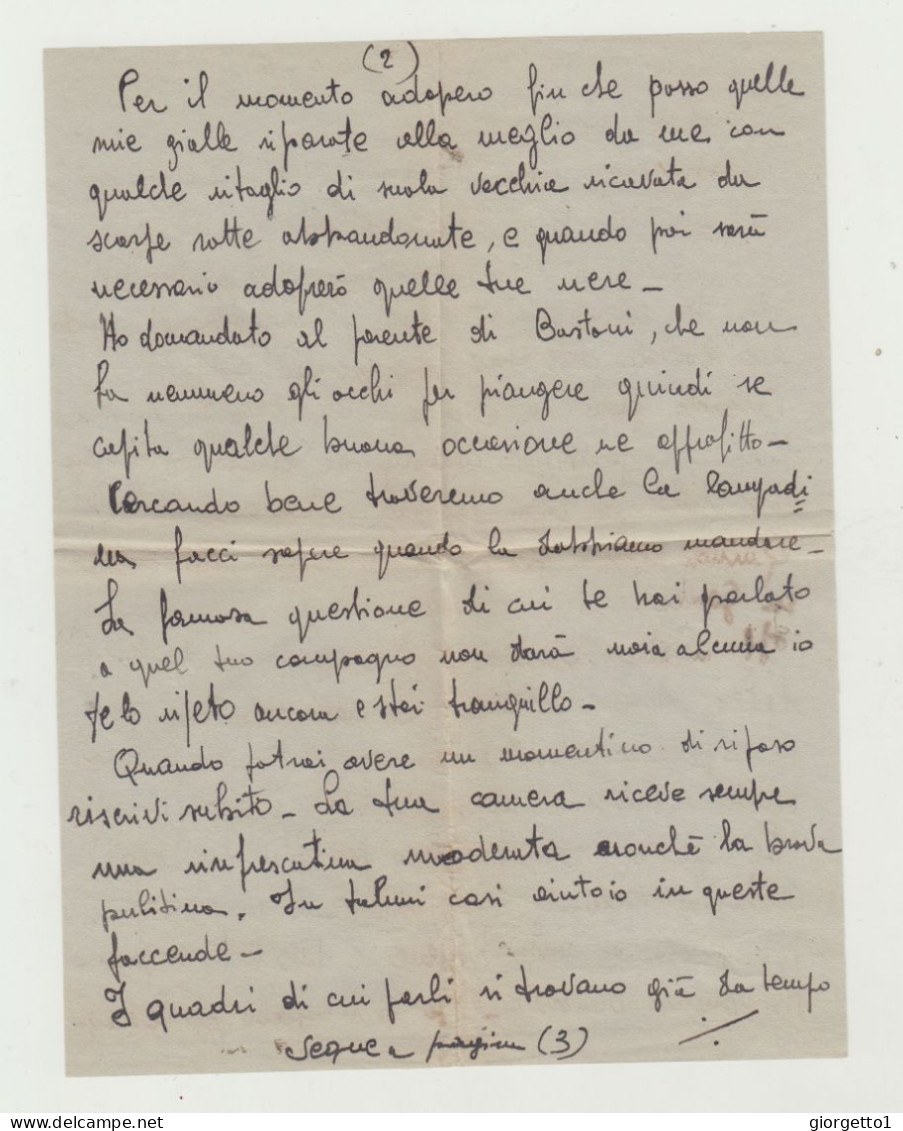 (2)
Per il momento adopero fin che posso quelle
mie gialle riparate alla meglio da me con
qualche ritaglio di suola vecchia ricavata da
scarpe rotte abbandonate, e quando poi sarà
necessario adoprerò quelle tue nere –
Ho domandato al parente di Bastoni, che non
ha nemmeno gli occhi per piangere quindi se
capita qualche buona occasione ne approfitto –
Cercando bene troveremo anche la lampadi=
na facci sapere quando la dobbiamo mandare –
La famosa questione di cui te hai parlato
a quel tuo compagno non darà noia alcuna io
te lo ripeto ancora e stai tranquillo –
Quando potrai avere un momentino di riposo
riscrivi subito – La tua camera riceve sempre
una rinfrescatina moderata nonchè la brava
pulitina. In taluni casi aiuto io in queste
faccende –
I quadri di cui parli si trovano già da tempo
segue a pagina (3) ./.
giorgetto1